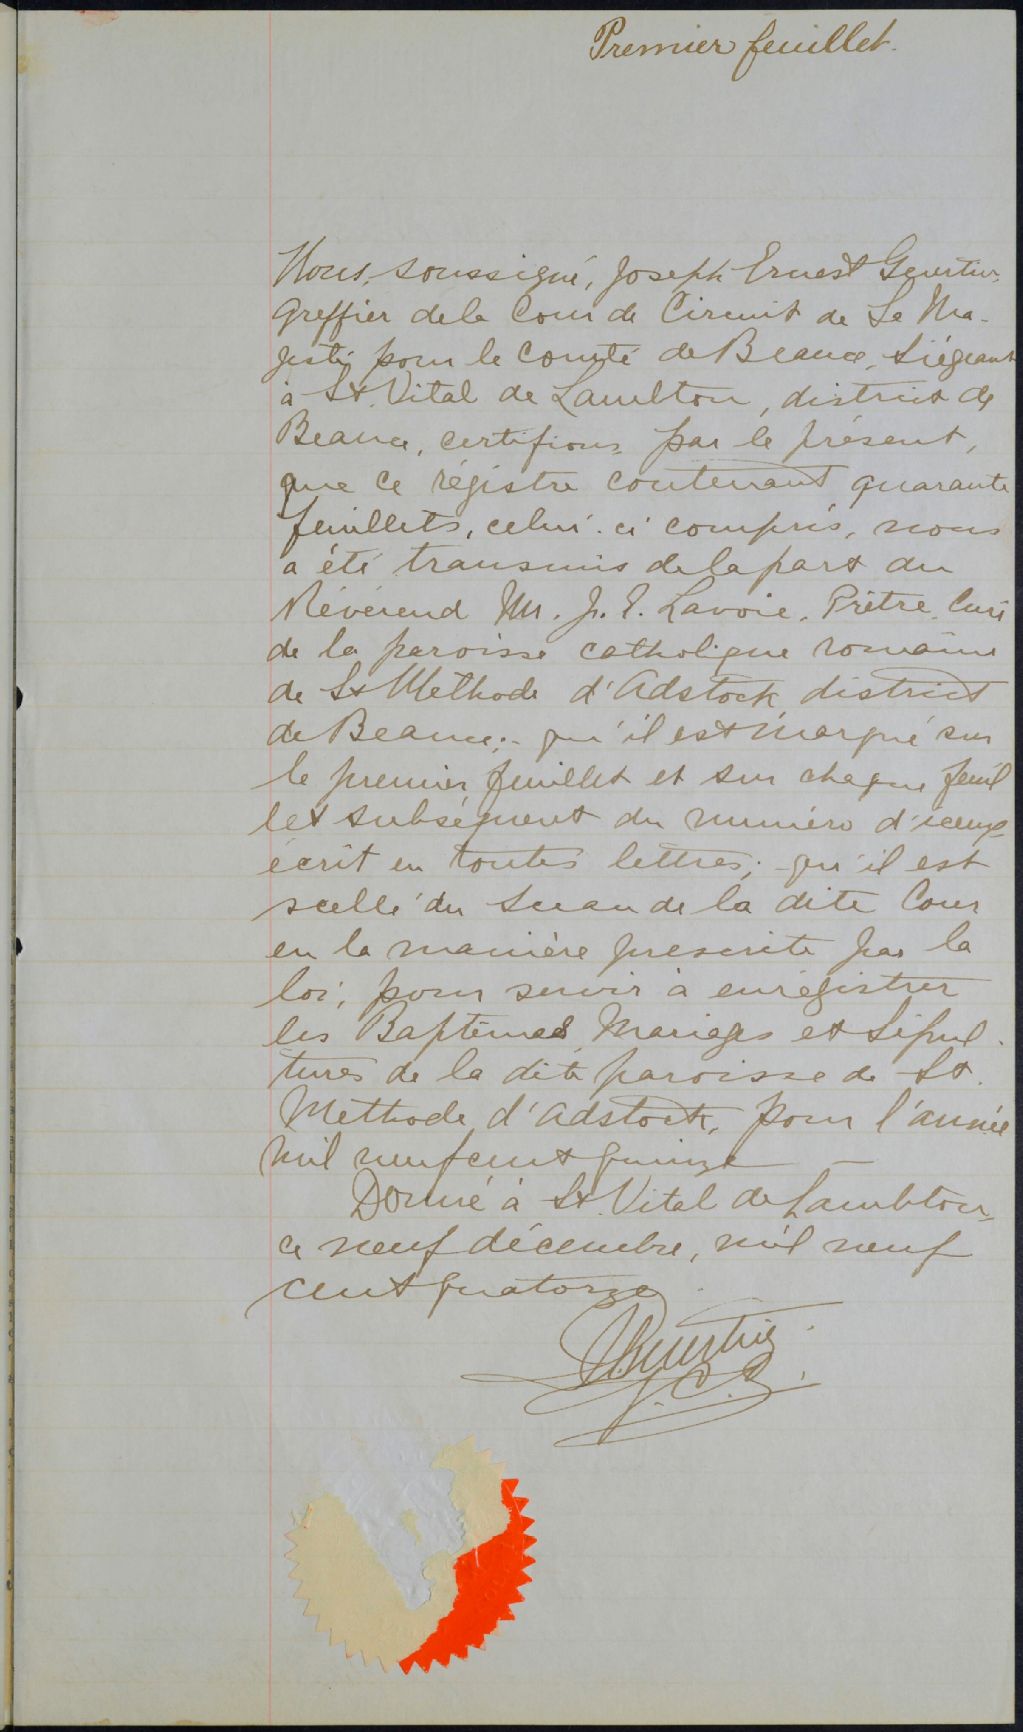 Premier feuillet.
Nous, soussigné, Joseph Ernest
Greffier de la Cour de Circuit de Sa Ma-
jesté pour le Comté de Beauce, siégeant
à St. Vital de Lambton, district de
Beauce, certifions par le présent,
que ce régistre contenant quarante
feuillets, celui-ci compris, nous
a été transmis de la part du
Révérend Mr. J. E. Lavoie, Prêtre, Curé
de la paroisse catholique romaine
de St Méthode d'Adstock, district
de Beauce; qu'il est marqué sur
le premier feuillet et sur chaque feuil
let subséquent du numéro d'iceux
écrit en toutes lettres; qu'il est
scellé du Sceau de la dite Cour
en la manière prescrite par la
loi, pour servir à enrégistrer
les Baptêmes, Mariages et Sépul-
tures de la dite paroisse de St.
Méthode d'Adstock, pour l'année
mil neuf cent quinze
Donné à St. Vital de Lambton,
ce neuf décembre, mil neuf
cent quatorze.